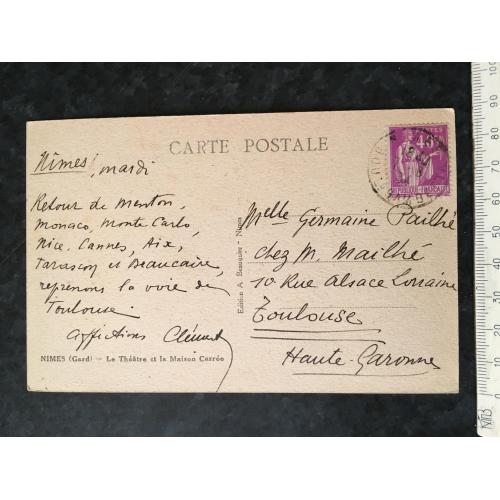 CARTE POSTALE
40
Nîmes, mardi
Retour de Menton,
Monaco, Monte Carlo,
Nice, Cannes, Aix,
Tarascon et Beaucaire,
reprenons la voie de
Toulouse.
Affections Clément
NIMES (Gard) — Le Théâtre et la Maison Carrée
Nimes
Edition A.
Melle Germaine Pailhé
chez M. Mailhé
10 Rue Alsace Lorraine
Toulouse
Haute-Garonne
100
90
80
70
60
50
40
30
20
10